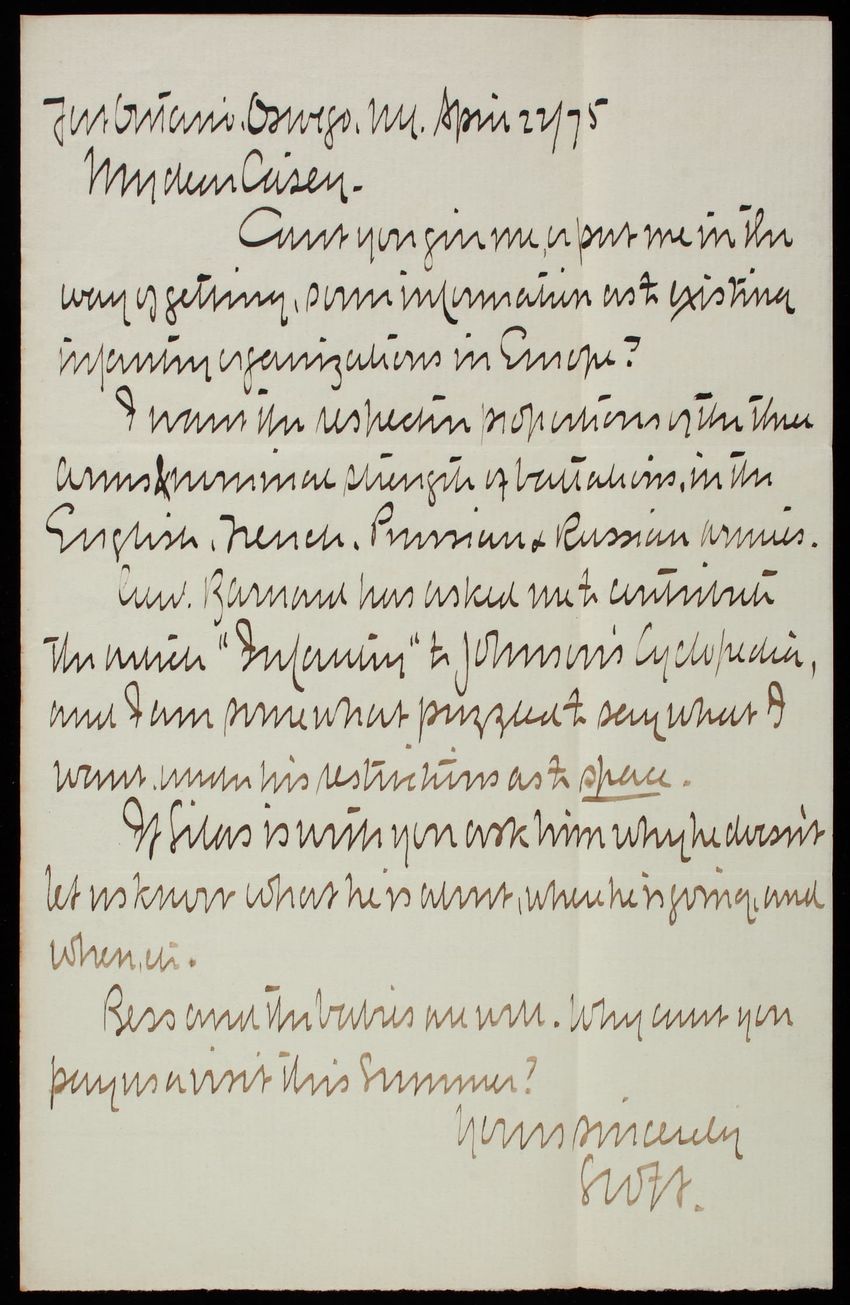 Fort Ontario, Oswego, N.Y. April 22/75
My dear Casey -
Cant you give me, or put me in the
way of getting, some information as to existing
infantry organizations in Europe?
I want the respective proportions of the three
arms & nominal strength of battalions, in the
English, French, Prussian & Russian armies.
Barnard has asked me to contribute
the article "Infantry" to Johnson's Cyclopedia,
and I am somewhat puzzled to say what I
want under his restrictions as to space.
If Silas is with you ask him why he doesn't
let us know what he is about, where he is going, and
when, etc.
Bess and the babies are well. Why cant you
pay us a visit this Summer?
Yours sincerely